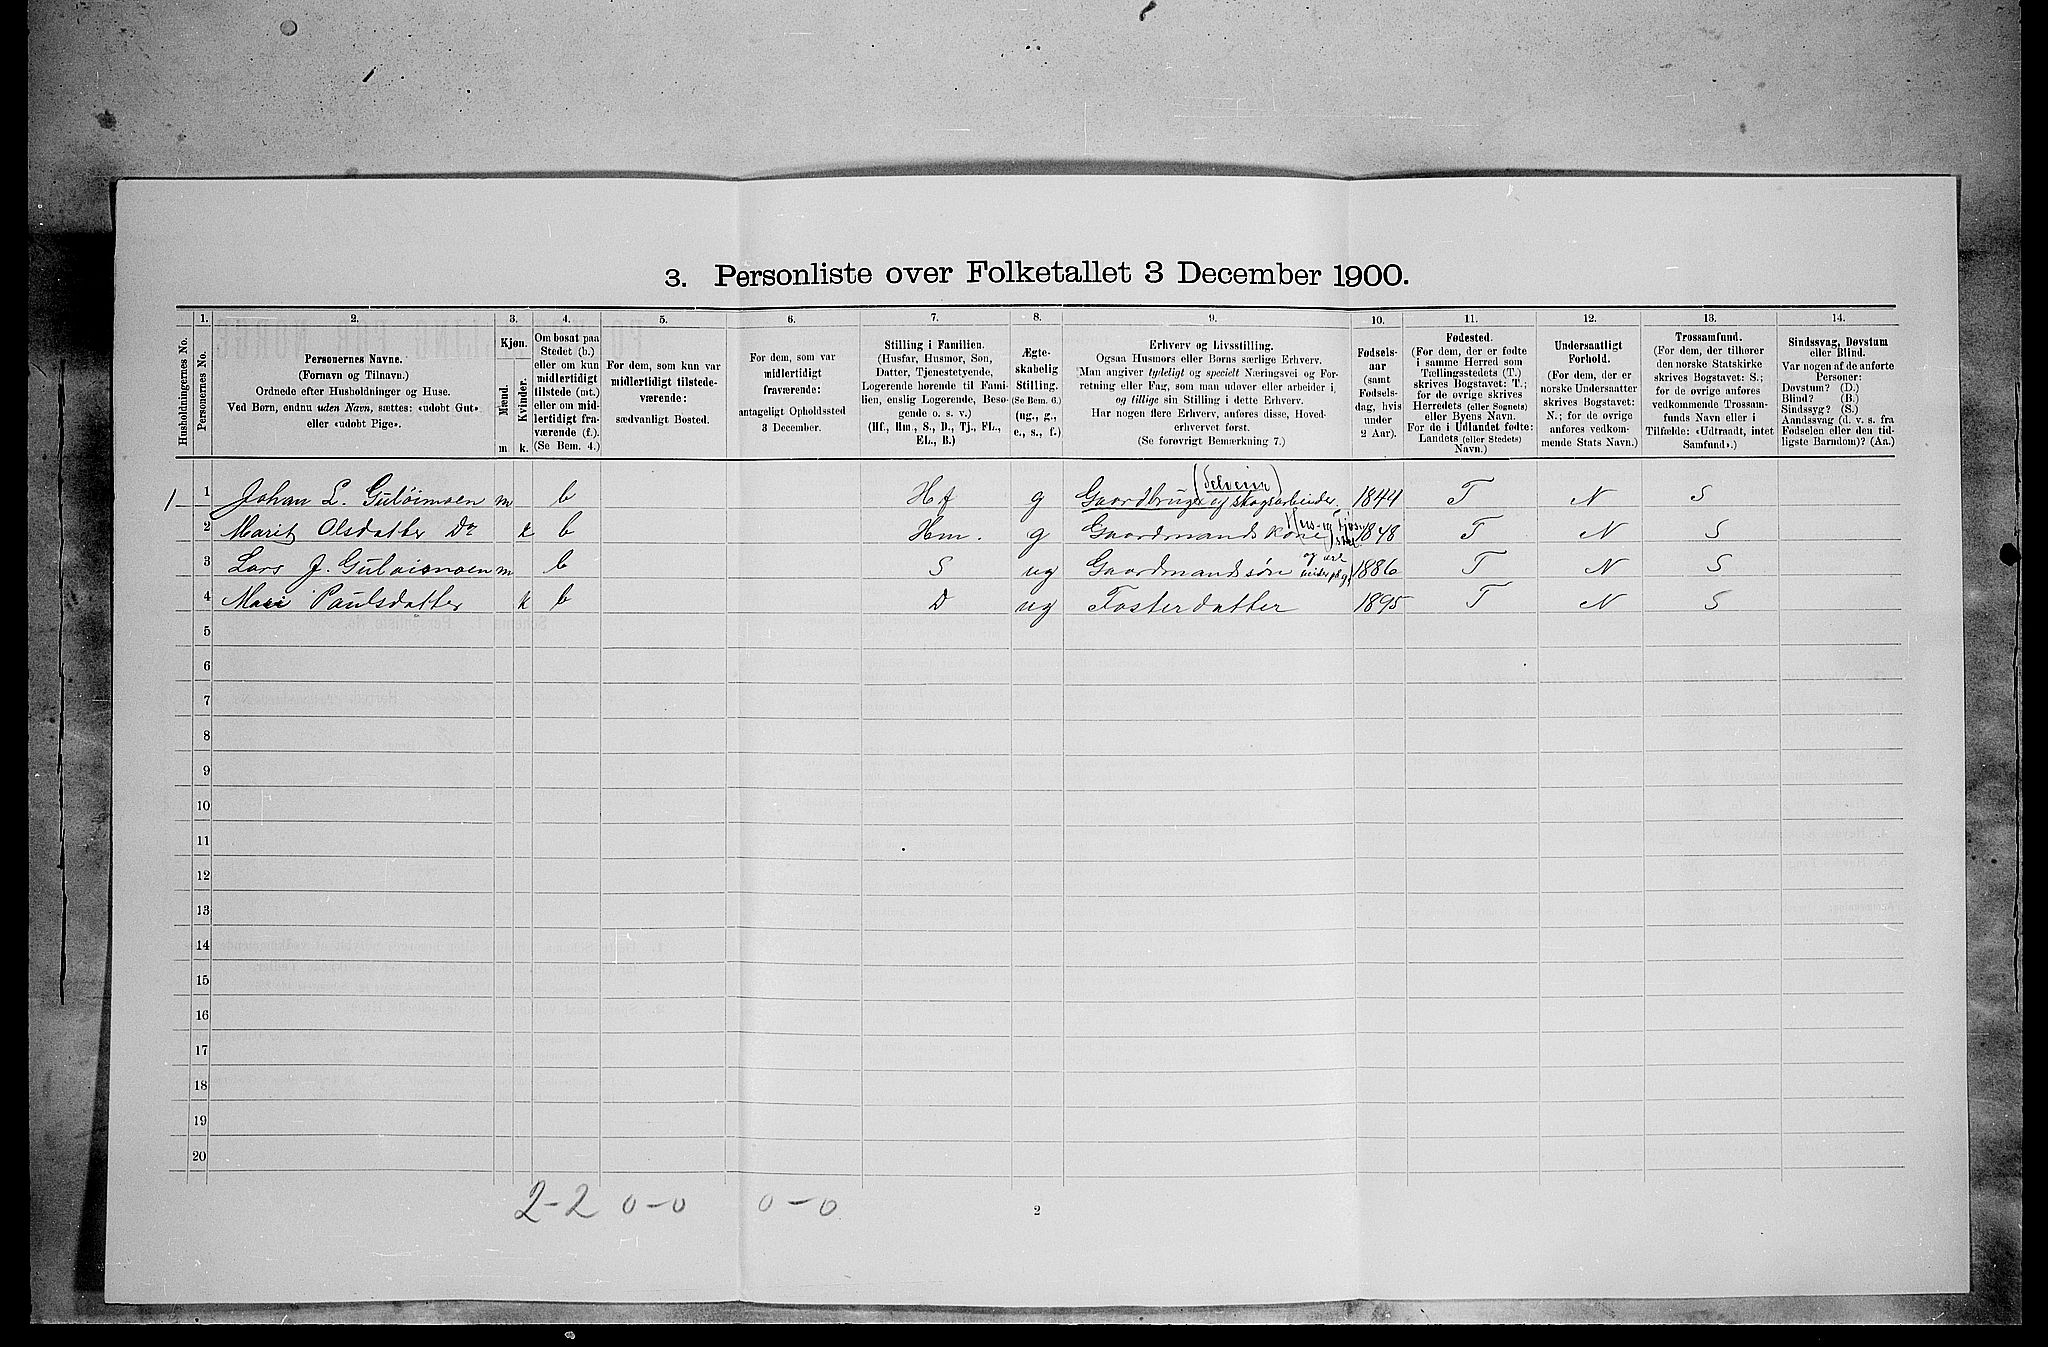 3. Personliste over Folketallet 3 December 1900.
1. 2. 3. 4. 5. 6. 7. 8. 9. 10. 11. 12. 13. 14.
Husholdningernes No.
Personernes No.
Personernes Navne.
(Fornavn og Tilnavn.)
Ordnede efter Husholdninger og Huse.
Ved Børn, endnu uden Navn, sættes: «udøbt Gut»
eller «udøbt Pige».
Kjøn.
Mænd.
Kvinder.
m k.
Om bosat paa
Stedet (b.)
eller om kun
midlertidigt
tilstede (mt.)
eller om mid-
lertidigt fra-
værende (f.).
(Se Bem. 4.)
For dem, som kun var
midlertidigt tilstede-
værende:
sædvanligt Bosted.
For dem, som var
midlertidigt
fraværende:
antageligt Opholdssted
3 December.
Stilling i Familien.
(Husfar, Husmor, Søn,
Datter, Tjenestetyende,
Logerende hørende til Fami-
lien, enslig Logerende, Besø-
gende o. s. v.)
(Hf., Hm., S., D., Tj., FL.,
EL., B.)
Ægte-
skabelig
Stilling.
(Se Bem. 6.)
(ug., g.,
e., s., f.)
Erhverv og Livsstilling.
Ogsaa Husmors eller Børns særlige Erhverv.
Man angiver tydeligt og specielt Næringsvei og For-
retning eller Fag, som man udøver eller arbeider i,
og tillige sin Stilling i dette Erhverv.
Har nogen flere Erhverv, anføres disse, Hoved-
erhvervet først.
(Se forøvrigt Bemærkning 7.)
Fødsels-
aar
(samt
Fødsels-
dag, hvis
under
2 Aar).
Fødested.
(For dem, der er fødte
i samme Herred som
Tællingsstedets (T.)
skrives Bogstavet: T.;
for de øvrige skrives
Herredets (eller Sognets)
eller Byens Navn.
For de i Udlandet fødte:
Landets (eller Stedets)
Navn.)
Undersaatligt
Forhold.
(For dem, der er
norske Undersaatter
skrives Bogstavet:
N.; for de øvrige
anføres vedkom-
mende Stats Navn.)
Trossamfund.
(For dem, der tilhører
den norske Statskirke
skrives Bogstavet: S.;
for de øvrige anføres
vedkommende Trossam-
funds Navn eller i
Tilfælde: «Udtraadt, intet
Samfund».)
Sindssvag, Døvstum
eller Blind.
Var nogen af de anførte
Personer:
Døvstum? (D.)
Blind? (B.)
Sindssyg? (S.)
Aandssvag (d. v. s. fra
Fødselen eller den tid-
ligste Barndom)? (Aa.)
(Selveier)
1 1 Johan L. Guløimoen m b Hf g Gaardbruger og skogsarbeider. 1844 T N S
2 Marit Olsdatter Do k b Hm. g Gaardmandskone 1848 T N S
3 Lars J. Guløimoen m b S ug Gaardmandssøn 1886 T N S
4 Mari Paulsdatter k b D ug Fosterdatter 1895 T N S
5
6
7
8
9
10
11
12
13
14
15
16
17
18
19
20
2-2 0-0 0-0
2